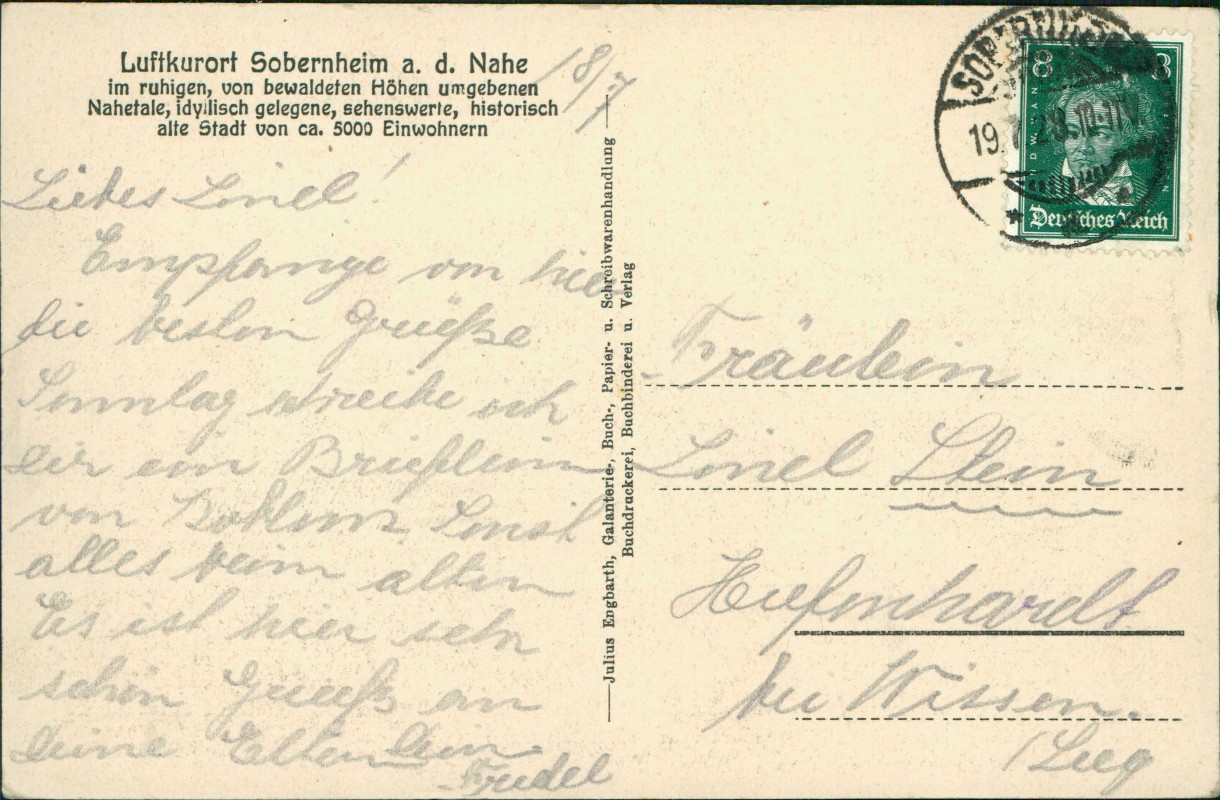 Luftkurort Sobernheim a. d. Nahe
im ruhigen, von bewaldeten Höhen umgebenen
Nahetale, idyllisch gelegene, sehenswerte, historisch
alte Stadt von ca. 5000 Einwohnern
18/7
Liebes Linel!
Empfange von hier
die besten Grüeße
Sonntag schreibe ich
dir ein Brieflein
von Koblenz. Sonst
alles beim alten
Es ist hier sehr
schön Grueß an
deine Eltern Dein
Friedel
Julius Engbarth, Galanterie-, Buch-, Papier- u. Schreibwarenhandlung
Buchdruckerei, Buchbinderei u. Verlag
SOBERNHEIM
19.7.28.10-11V.
8 8
Deutsches Reich
Fräulein
Linel Stein
Hufenhardt
bei Wissen.
/Sieg